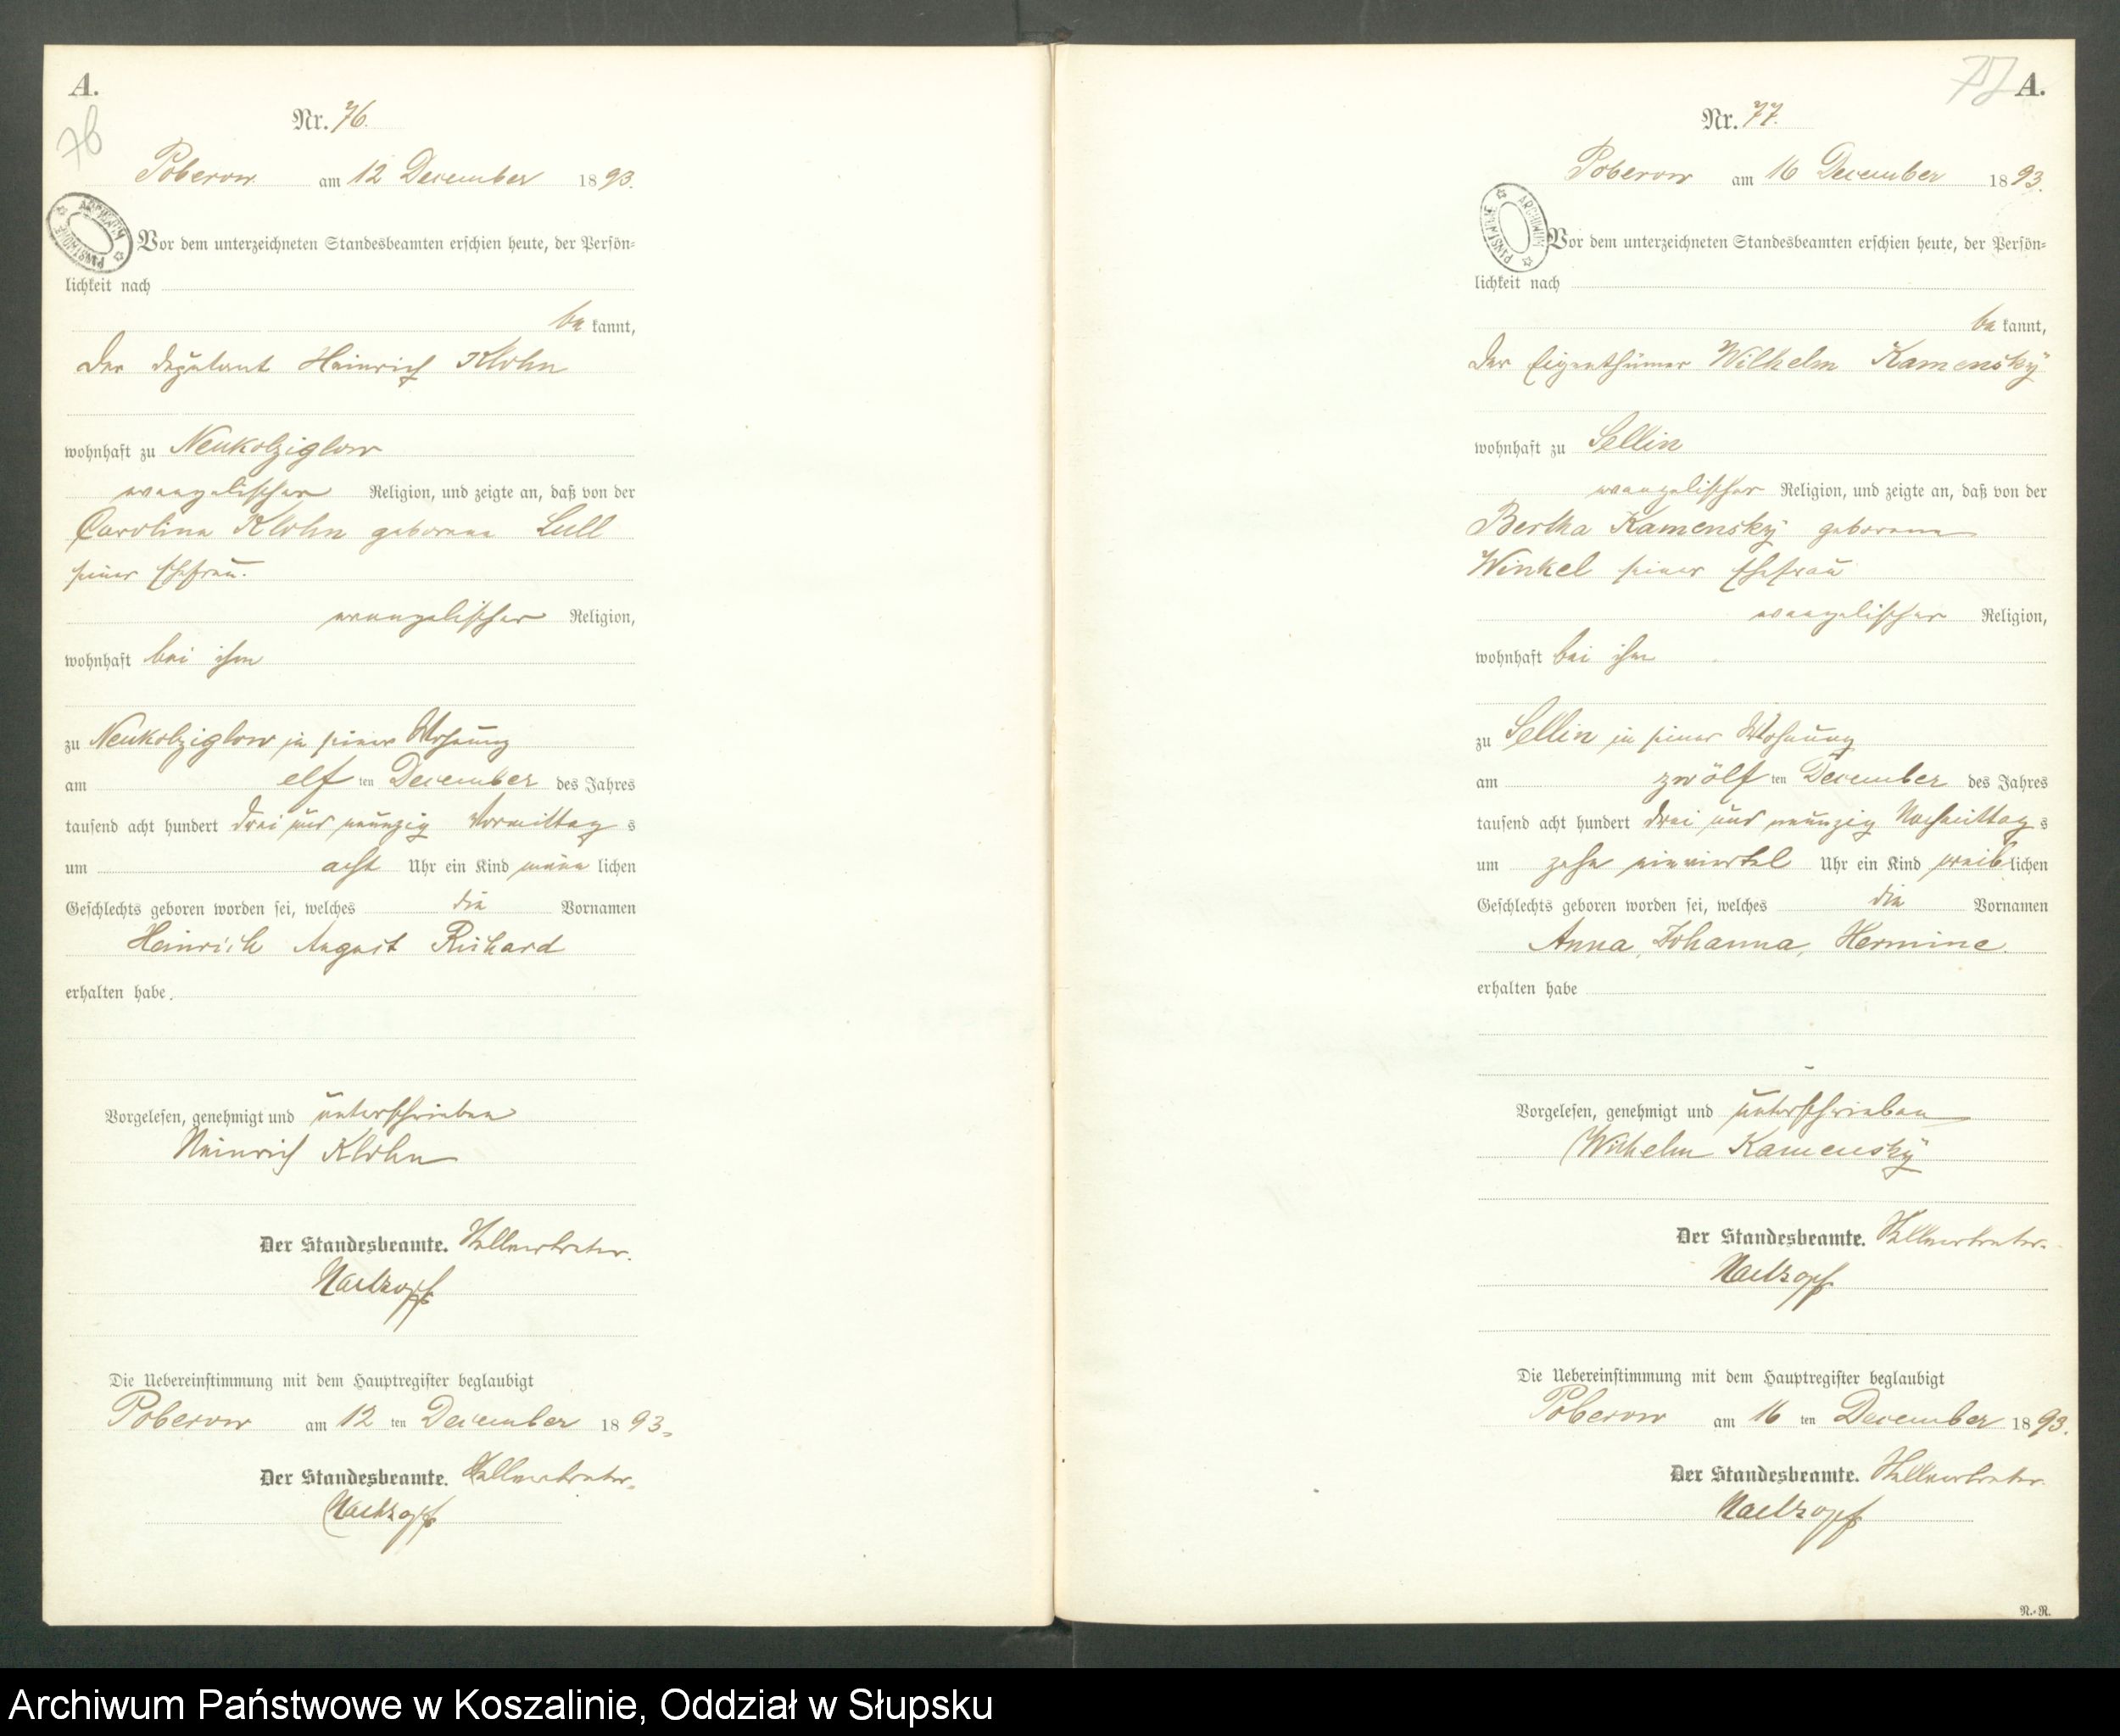 A.
76
Nr. 76.
Poberow am 12 December 1893.
ARCHIWUM PAŃSTWOWE
Vor dem unterzeichneten Standesbeamten erschien heute, der Persön-
lichkeit nach
be kannt,
der Deputant Heinrich Klohn
wohnhaft zu Neukolziglow
evangelischer Religion, und zeigte an, daß von der
Caroline Klohn geborene Lull
seiner Ehefrau.
evangelischer Religion,
wohnhaft bei ihm
zu Neukolziglow in seiner Wohnung
am elf ten December des Jahres
tausend acht hundert drei und neunzig Vormittag s
um acht Uhr ein Kind männ lichen
Geschlechts geboren worden sei, welches die Vornamen
Heinrich August Richard
erhalten habe.
Vorgelesen, genehmigt und unterschrieben
Heinrich Klohn
Der Standesbeamte. Stellvertreter.
Die Uebereinstimmung mit dem Hauptregister beglaubigt
Poberow am 12 ten December 1893.
Der Standesbeamte. Stellvertreter.
77 A.
Nr. 77.
Poberow am 16 December 1893.
ARCHIWUM PAŃSTWOWE
Vor dem unterzeichneten Standesbeamten erschien heute, der Persön-
lichkeit nach
be kannt,
der Eigenthümer Wilhelm Kamensky
wohnhaft zu Sellin
evangelischer Religion, und zeigte an, daß von der
Bertha Kamensky geborene
Winkel seiner Ehefrau
evangelischer Religion,
wohnhaft bei ihm
zu Sellin in seiner Wohnung
am zwölf ten December des Jahres
tausend acht hundert drei und neunzig Nachmittag s
um zehn einviertel Uhr ein Kind weiblichen
Geschlechts geboren worden sei, welches die Vornamen
Anna, Johanna, Hermine.
erhalten habe
Vorgelesen, genehmigt und unterschrieben
Wilhelm Kamensky
Der Standesbeamte. Stellvertreter.
Die Uebereinstimmung mit dem Hauptregister beglaubigt
Poberow am 16 ten December 1893.
Der Standesbeamte. Stellvertreter.
N.-R.
Archiwum Państwowe w Koszalinie, Oddział w Słupsku